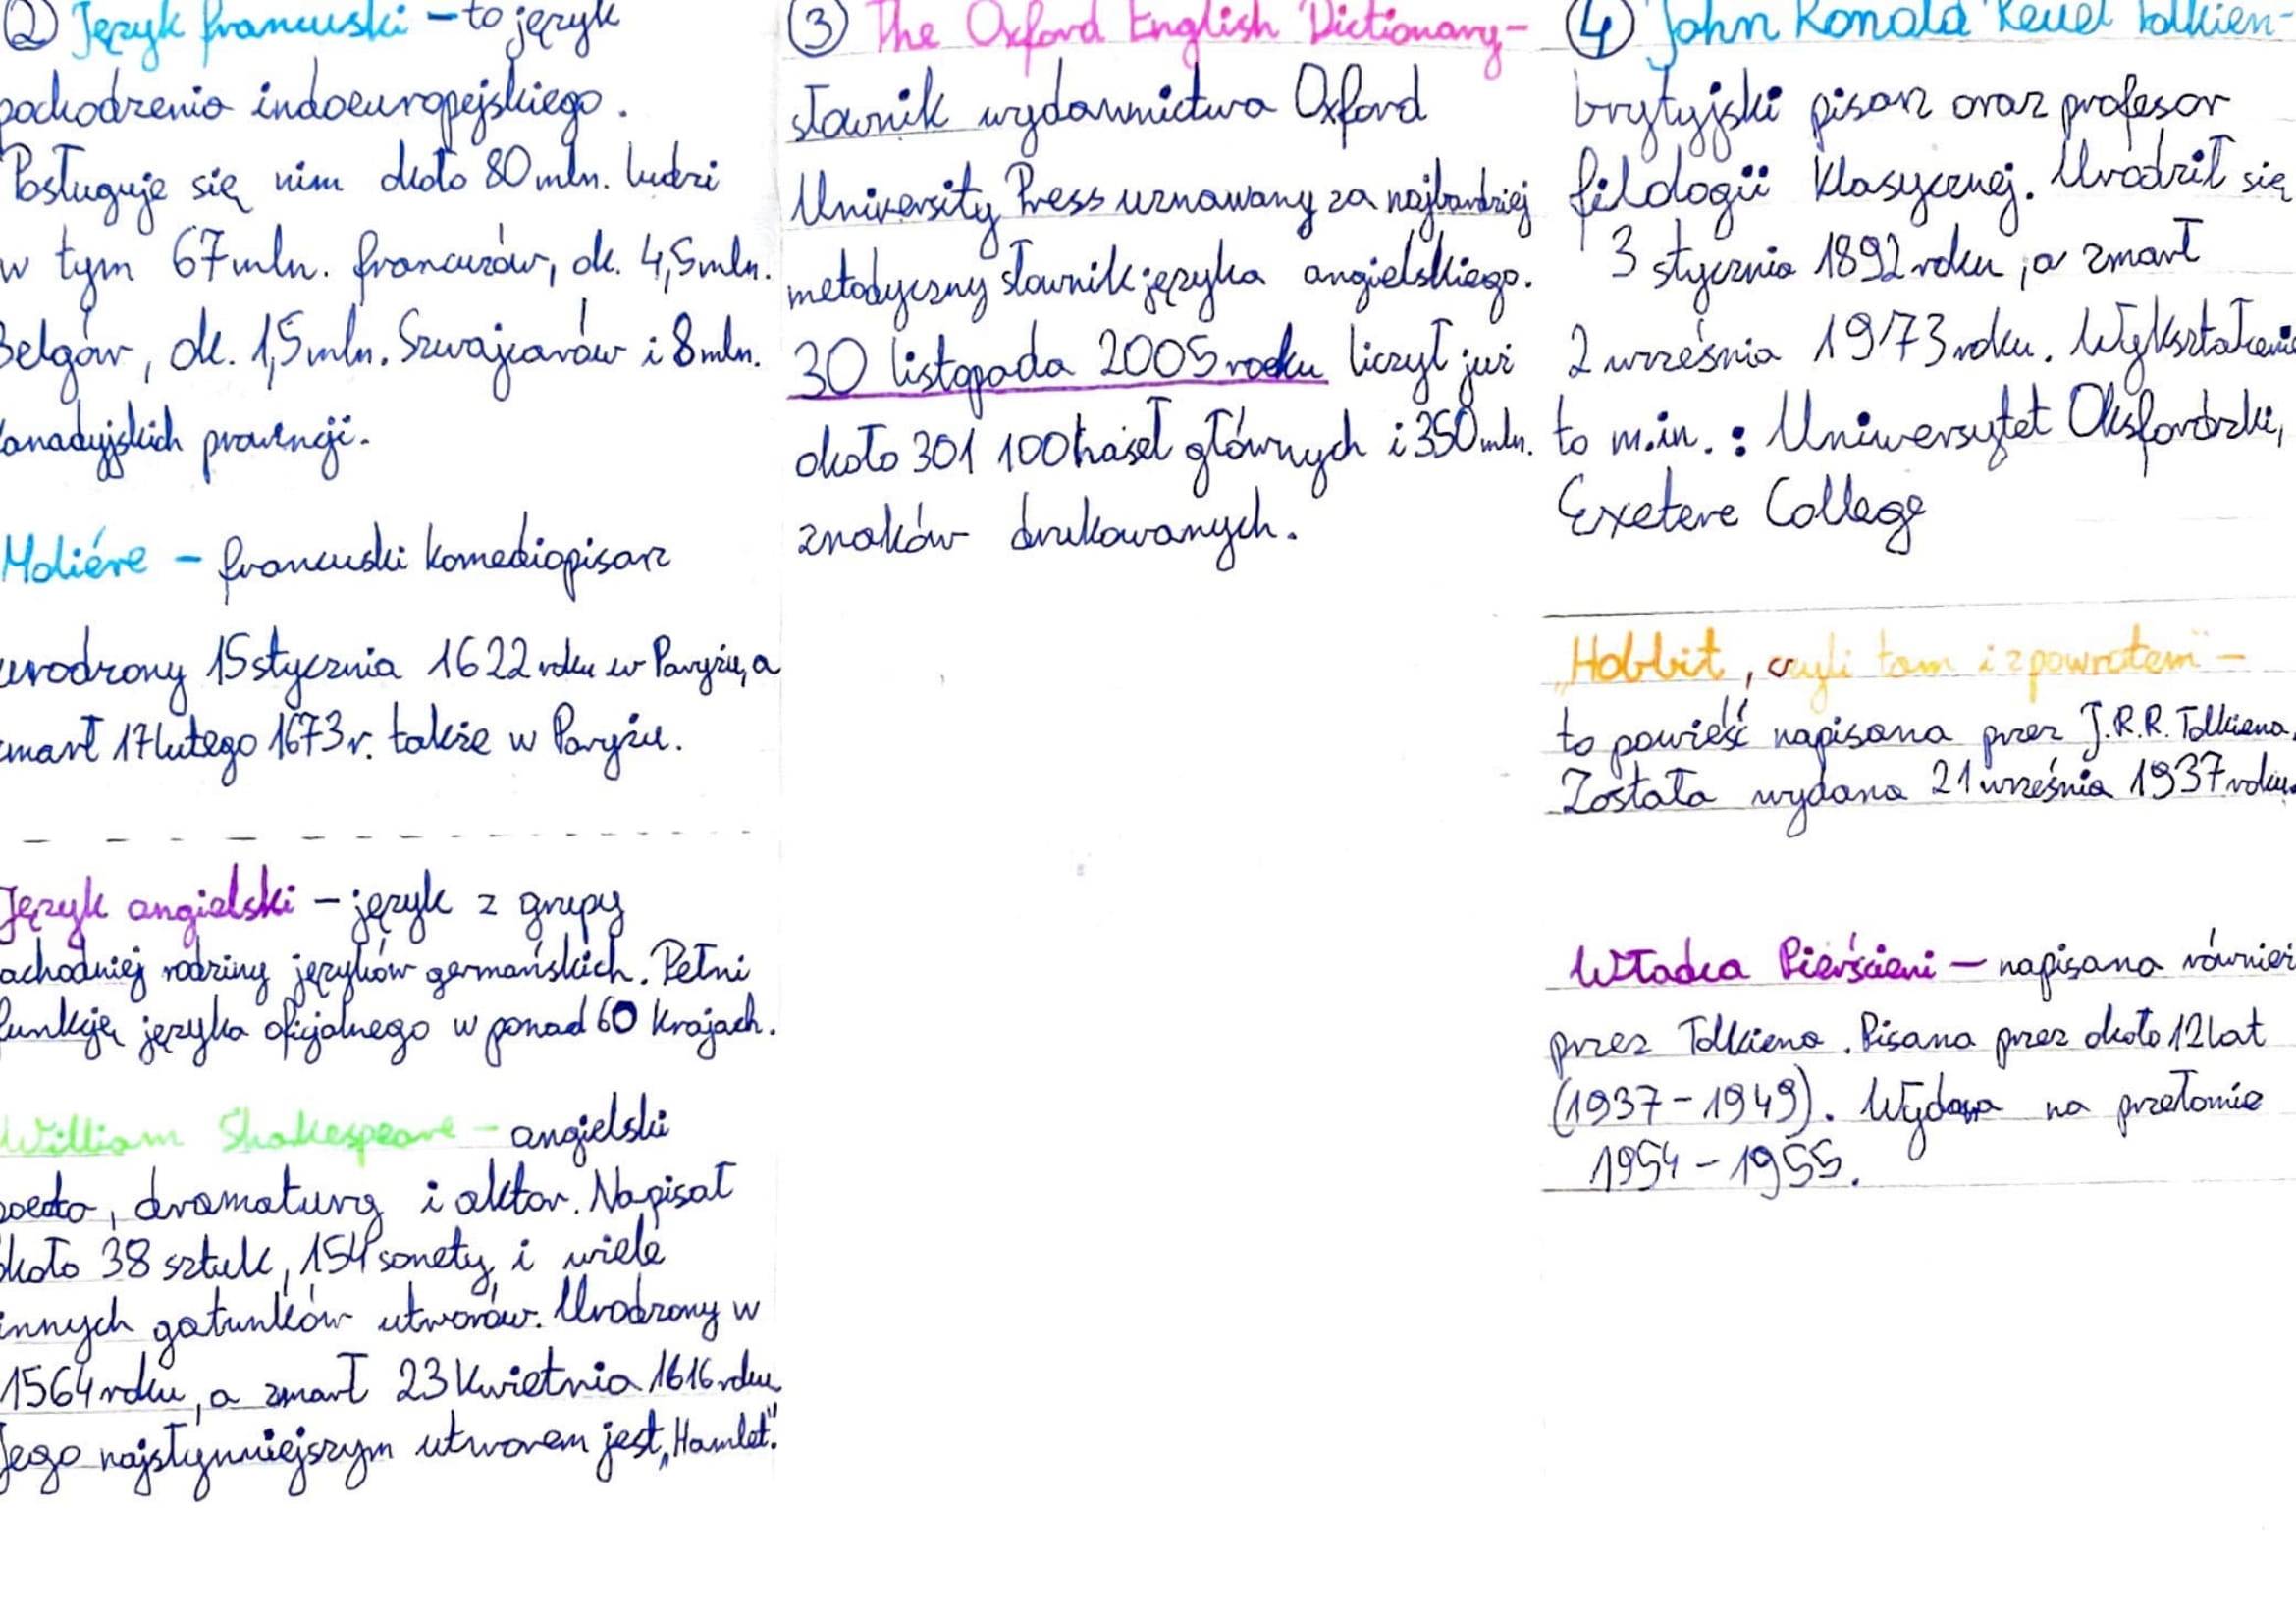 ② Język francuski – to język
pochodzenia indoeuropejskiego.
Posługuje się nim około 80 mln. ludzi
w tym 67 mln. francuzów, ok. 4,5 mln.
Belgów, ok. 1,5 mln. Szwajcarów i 8 mln.
kanadyjskich prowincji.
Moliére – francuski komediopisarz
urodzony 15 stycznia 1622 roku w Paryżu, a
zmarł 17 lutego 1673 r. także w Paryżu.
Język angielski – język z grupy
zachodniej rodziny języków germańskich. Pełni
funkcję języka oficjalnego w ponad 60 krajach.
William Shakespeare – angielski
poeta, dramaturg i aktor. Napisał
około 38 sztuk, 154 sonety i wiele
innych gatunków utworów. Urodzony w
1564 roku, a zmarł 23 kwietnia 1616 roku
Jego najsłynniejszym utworem jest „Hamlet".
③ The Oxford English Dictionary –
słownik wydawnictwa Oxford
University Press uznawany za najbardziej
metodyczny słownik języka angielskiego.
30 listopada 2005 roku liczył już
około 301 100 haseł głównych i 350 mln.
znaków drukowanych.
④ John Ronald Reuel Tolkien –
brytyjski pisarz oraz profesor
filologii klasycznej. Urodził się
3 stycznia 1892 roku, a zmarł
2 września 1973 roku. Wykształcenie
to m.in.: Uniwersytet Oksfordzki,
Exetere College
„Hobbit, czyli tam i z powrotem" –
to powieść napisana przez J.R.R. Tolkiena.
Została wydana 21 września 1937 roku.
Władca Pierścieni – napisana również
przez Tolkiena. Pisana przez około 12 lat
(1937 – 1949). Wydana na przełomie
1954 – 1955.